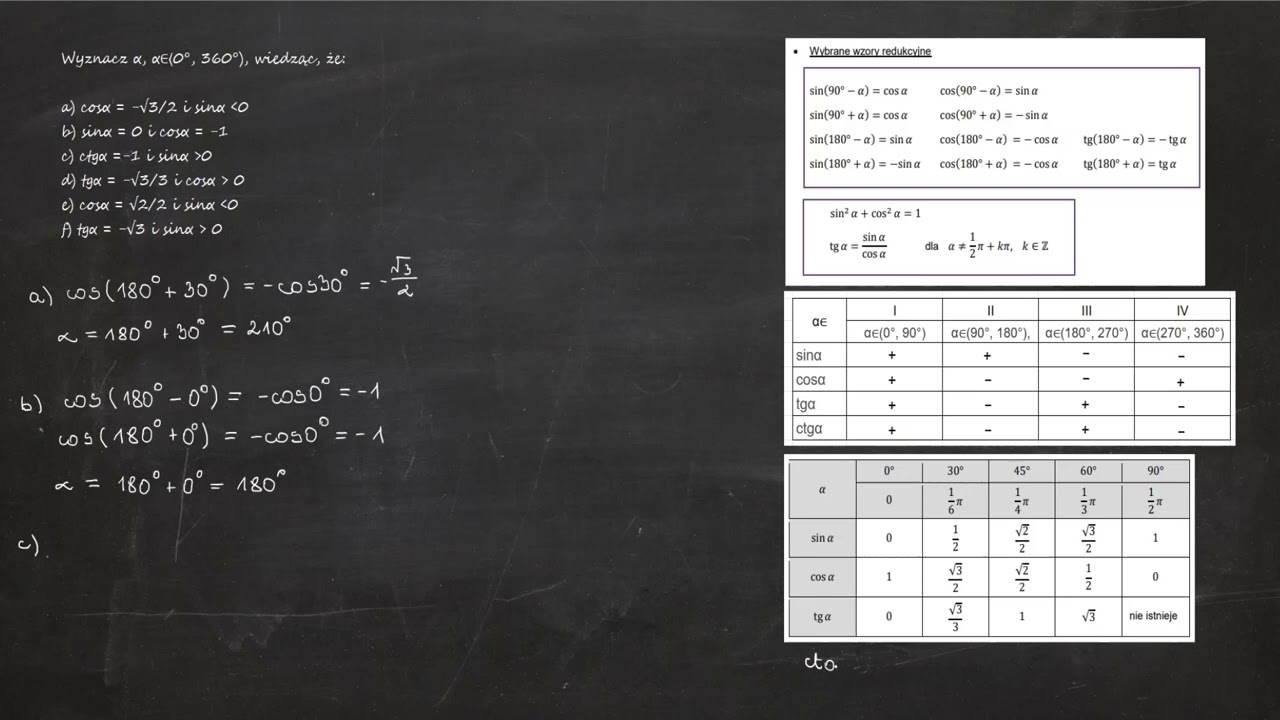 Wyznacz α, α∈(0°, 360°), wiedząc, że:
a) cosα = -√3/2 i sinα <0
b) sinα = 0 i cosα = -1
c) ctgα = -1 i sinα >0
d) tgα = -√3/3 i cosα > 0
e) cosα = √2/2 i sinα <0
f) tgα = -√3 i sinα > 0
a) cos(180° + 30°) = -cos30° = -√3/2
α = 180° + 30° = 210°
b) cos(180° - 0°) = -cos0° = -1
cos(180° + 0°) = -cos0° = -1
α = 180° + 0° = 180°
c)
• Wybrane wzory redukcyjne
sin(90° − α) = cos α cos(90° − α) = sin α
sin(90° + α) = cos α cos(90° + α) = − sin α
sin(180° − α) = sin α cos(180° − α) = − cos α tg(180° − α) = − tg α
sin(180° + α) = −sin α cos(180° + α) = − cos α tg(180° + α) = tg α
sin² α + cos² α = 1
tg α = sin α / cos α dla α ≠ 1/2 π + kπ, k ∈ ℤ
α∈ I II III IV
α∈(0°, 90°) α∈(90°, 180°), α∈(180°, 270°) α∈(270°, 360°)
sinα + + − −
cosα + − − +
tgα + − + −
ctgα + − + −
α 0° 30° 45° 60° 90°
0 1/6 π 1/4 π 1/3 π 1/2 π
sin α 0 1/2 √2/2 √3/2 1
cos α 1 √3/2 √2/2 1/2 0
tg α 0 √3/3 1 √3 nie istnieje